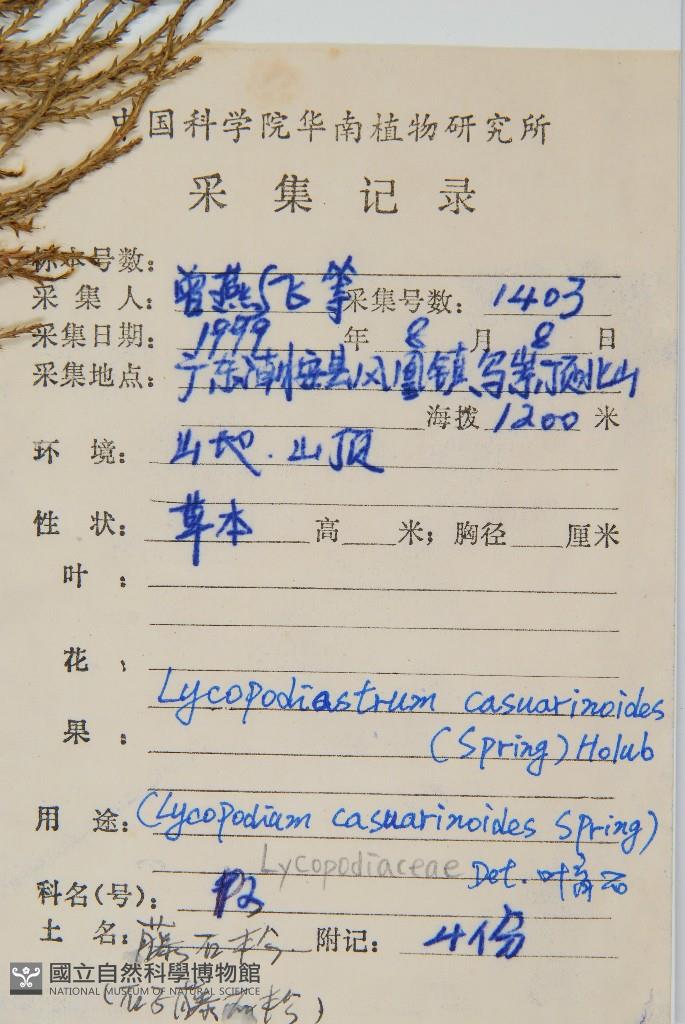 中国科学院华南植物研究所
采集记录
标本号数:
采集人: 曾燕飞等 采集号数: 1403
采集日期: 1999 年 8 月 8 日
采集地点: 广东潮安县凤凰镇乌崬顶北山
海拨 1200 米
环境: 山地.山顶
性状: 草本 高 米; 胸径 厘米
叶:
花:
Lycopodiastrum casuarinoides
果: (Spring) Holub
用途: (Lycopodium casuarinoides Spring)
Lycopodiaceae Det.
科名(号): P2
土名: 藤石松 附记: 4份
國立自然科學博物館
NATIONAL MUSEUM OF NATURAL SCIENCE
藤石松)